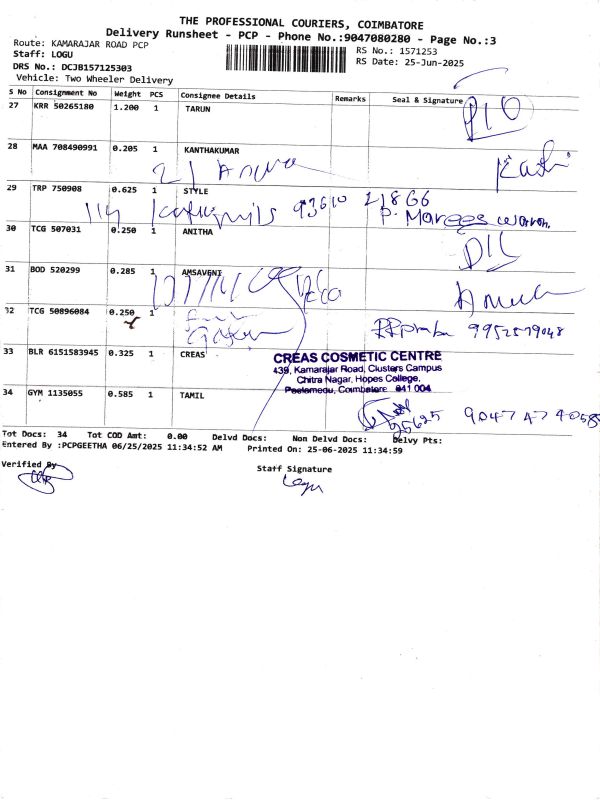 THE PROFESSIONAL COURIERS, COIMBATORE
Delivery Runsheet - PCP - Phone No.:9047080280 - Page No.:3
Route: KAMARAJAR ROAD PCP
Staff: LOGU
DRS No.: DCJB157125303
Vehicle: Two Wheeler Delivery
RS No.: 1571253
RS Date: 25-Jun-2025
S No Consignment No Weight PCS Consignee Details Remarks Seal & Signature
27 KRR 50265180 1.200 1 TARUN
28 MAA 708490991 0.205 1 KANTHAKUMAR
29 TRP 750908 0.625 1 STYLE
30 TCG 507031 0.250 1 ANITHA
31 BOD 520299 0.285 1 AMSAVENI
32 TCG 50896084 0.250 1
9952579048
33 BLR 6151583945 0.325 1 CREAS
CREAS COSMETIC CENTRE
439, Kamarajar Road, Clusters Campus
Chitra Nagar, Hopes College,
Peelamedu, Coimbatore 641 004
34 GYM 1135055 0.585 1 TAMIL
Tot Docs: 34 Tot COD Amt: 0.00 Delvd Docs: Non Delvd Docs: Delvy Pts:
Entered By :PCPGEETHA 06/25/2025 11:34:52 AM Printed On: 25-06-2025 11:34:59
Verified By
Staff Signature
Logu